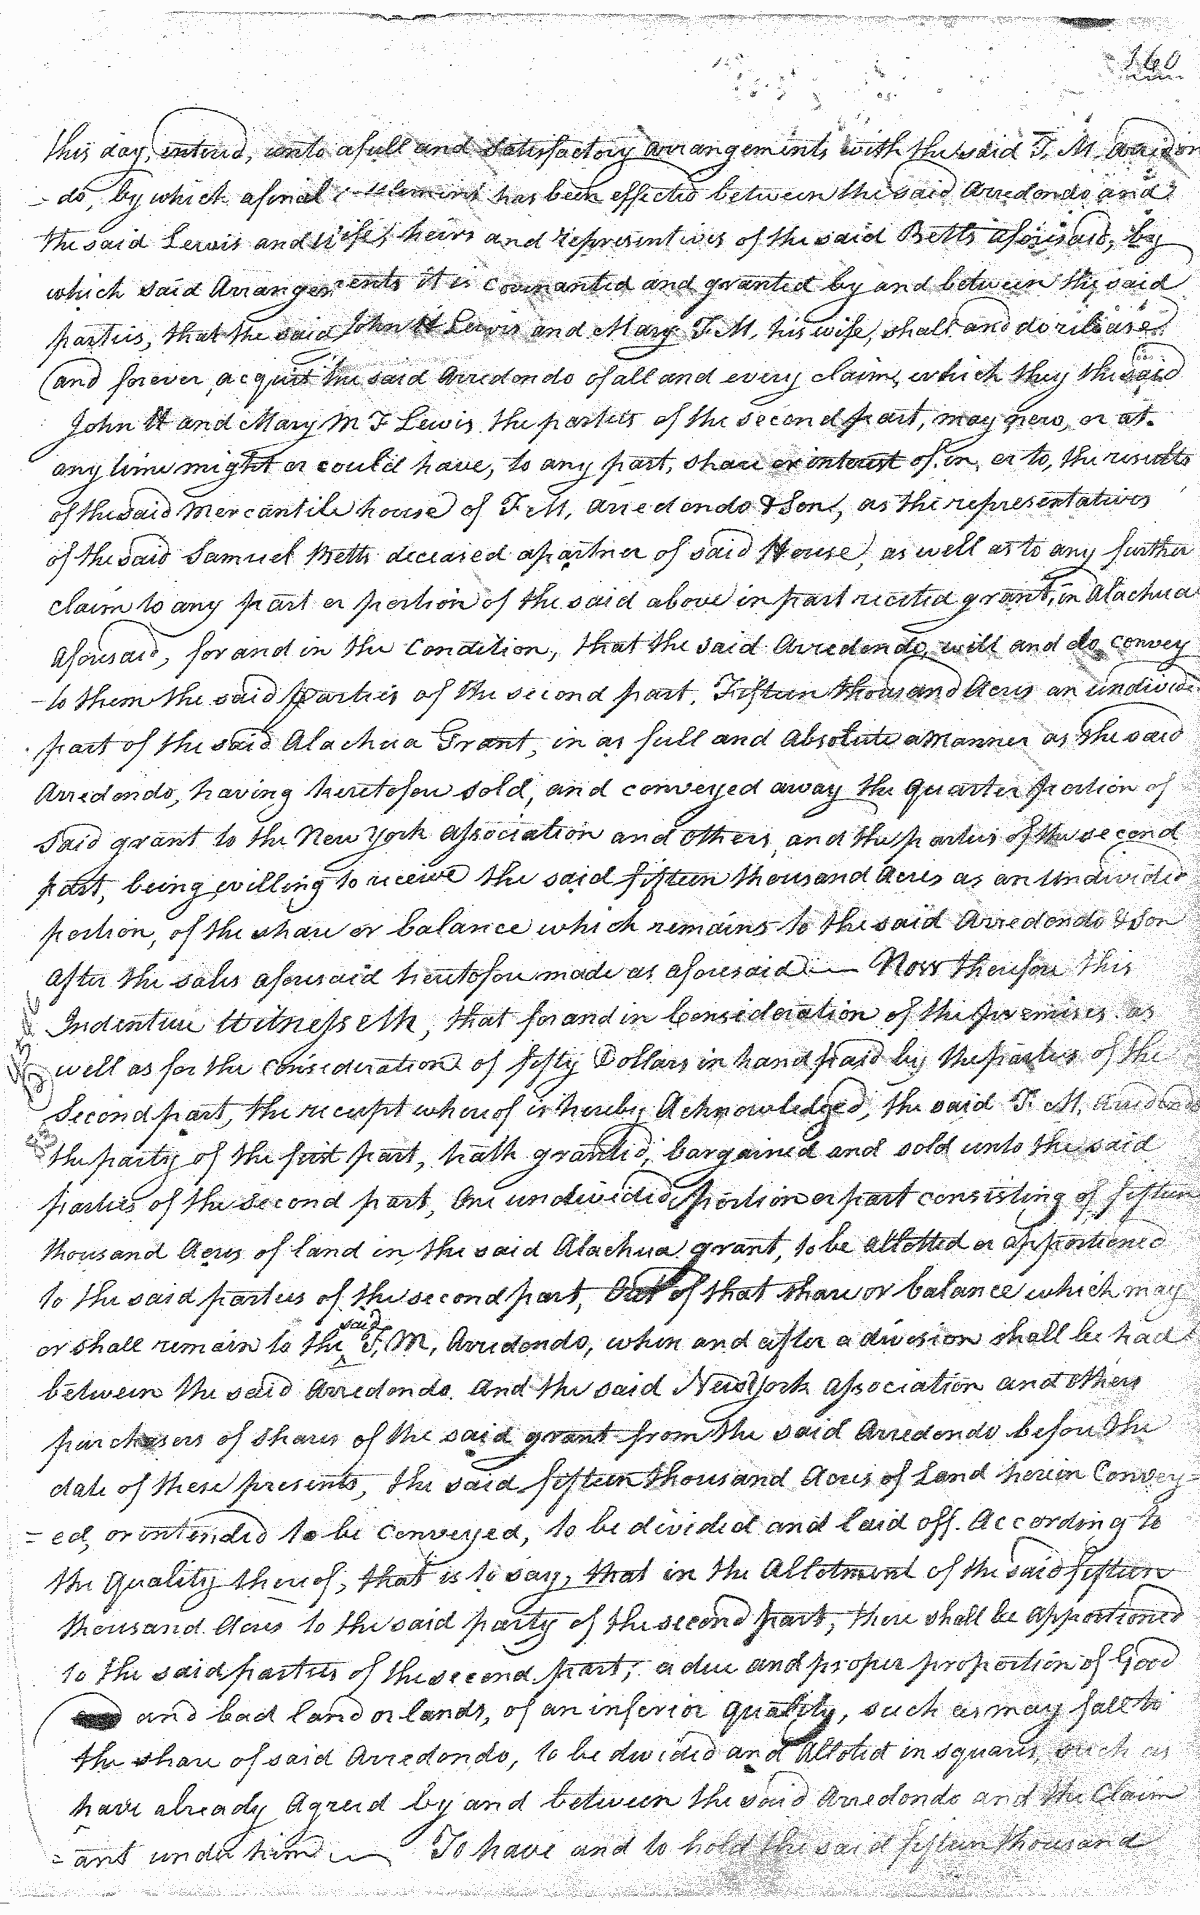 160
this day, entered, unto a full and satisfactory arrangements with the said F. M. Arredon
- do, by which a final settlement has been effected between the said Arredondo and
the said Lewis and wife, heirs and representives of the said Betts aforesaid, by
which said Arrangements it is covenanted and granted by and between the said
parties, that the said John H Lewis and Mary F. M, his wife, shall and do release
and forever acquit the said Arredondo of all and every claim, which they the said
John H and Mary M F Lewis the parties of the second part, may now, or at
any time might or could have, to any part, share or interest of, in, or to, the results
of the said Mercantile house of F. M, Arredondo & Son, as the representatives
of the said Samuel Betts deceased a partner of said House, as well as to any further
claim to any part or portion of the said above in part recited grant, in Alachua
Aforesaid, for and in the Condition, that the said Arredondo, will and do convey
- to them the said parties of the second part, Fifteen thousand Acres an undivided
part of the said Alachua Grant, in as full and Absolute a Manner as the said
Arredondo, having heretofore sold, and conveyed away the Quarter portion of
Said grant to the New York Association and others, and the parties of the second
part, being willing to receive the said fifteen thousand Acres as an Undivided
portion, of the share or balance which remains to the said Arredondo & Son
after the sales aforesaid heretofore made as aforesaid — Now therefore this
Indenture Witnesseth, that for and in Consideration of the premises as
well as for the consideration of fifty Dollars in hand paid by the parties of the
Second part, the receipt whereof is hereby Acknowledged, the said F. M, Arredondo
the party of the first part, hath granted, bargained and sold unto the said
parties of the second part, One undivided portion or part consisting of fifteen
thousand Acres of land in the said Alachua grant, to be allotted or apportioned
to the said parties of the second part, Out of that share or balance which may
or shall remain to the said F. M, Arredondo, when and after a division shall be had
between the said Arredondo. And the said New York Association and others
purchasers of shares of the said grant from the said Arredondo before the
date of these presents, the said fifteen thousand Acres of Land herein Convey-
= ed, or intended to be conveyed, to be divided and laid off. According to
the Quality thereof, that is to say, that in the Allotment of the said fifteen
thousand Acres to the said party of the second part, there shall be apportioned
to the said parties of the second part, a due and proper proportion of Good
and bad land or lands, of an inferior quality, such as may fall to
the share of said Arredondo, to be divided and Alloted in squares, such as
have already Agreed by and between the said Arredondo and the Claim
= ant under him — To have and to hold the said fifteen thousand